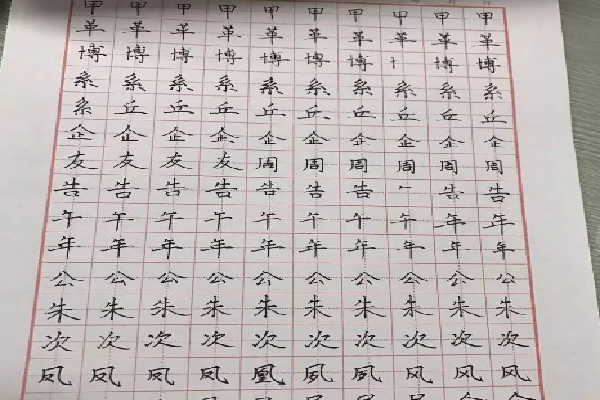 甲甲甲甲甲甲甲甲甲甲
革革革革革革革革革革
博博博博博博博博博
系系系系系系系系系系
系丘丘丘丘丘丘丘丘丘
企企企企企企企企企企
友友友友周周周周周周
告告告告告告告告告
午午午午午午午午年年
年年年年年年年年年年
公公公公公公公公公公
朱朱朱朱朱朱朱朱朱朱
次次次次次次次次次次
凤凤凤凤凰夙夙风风风